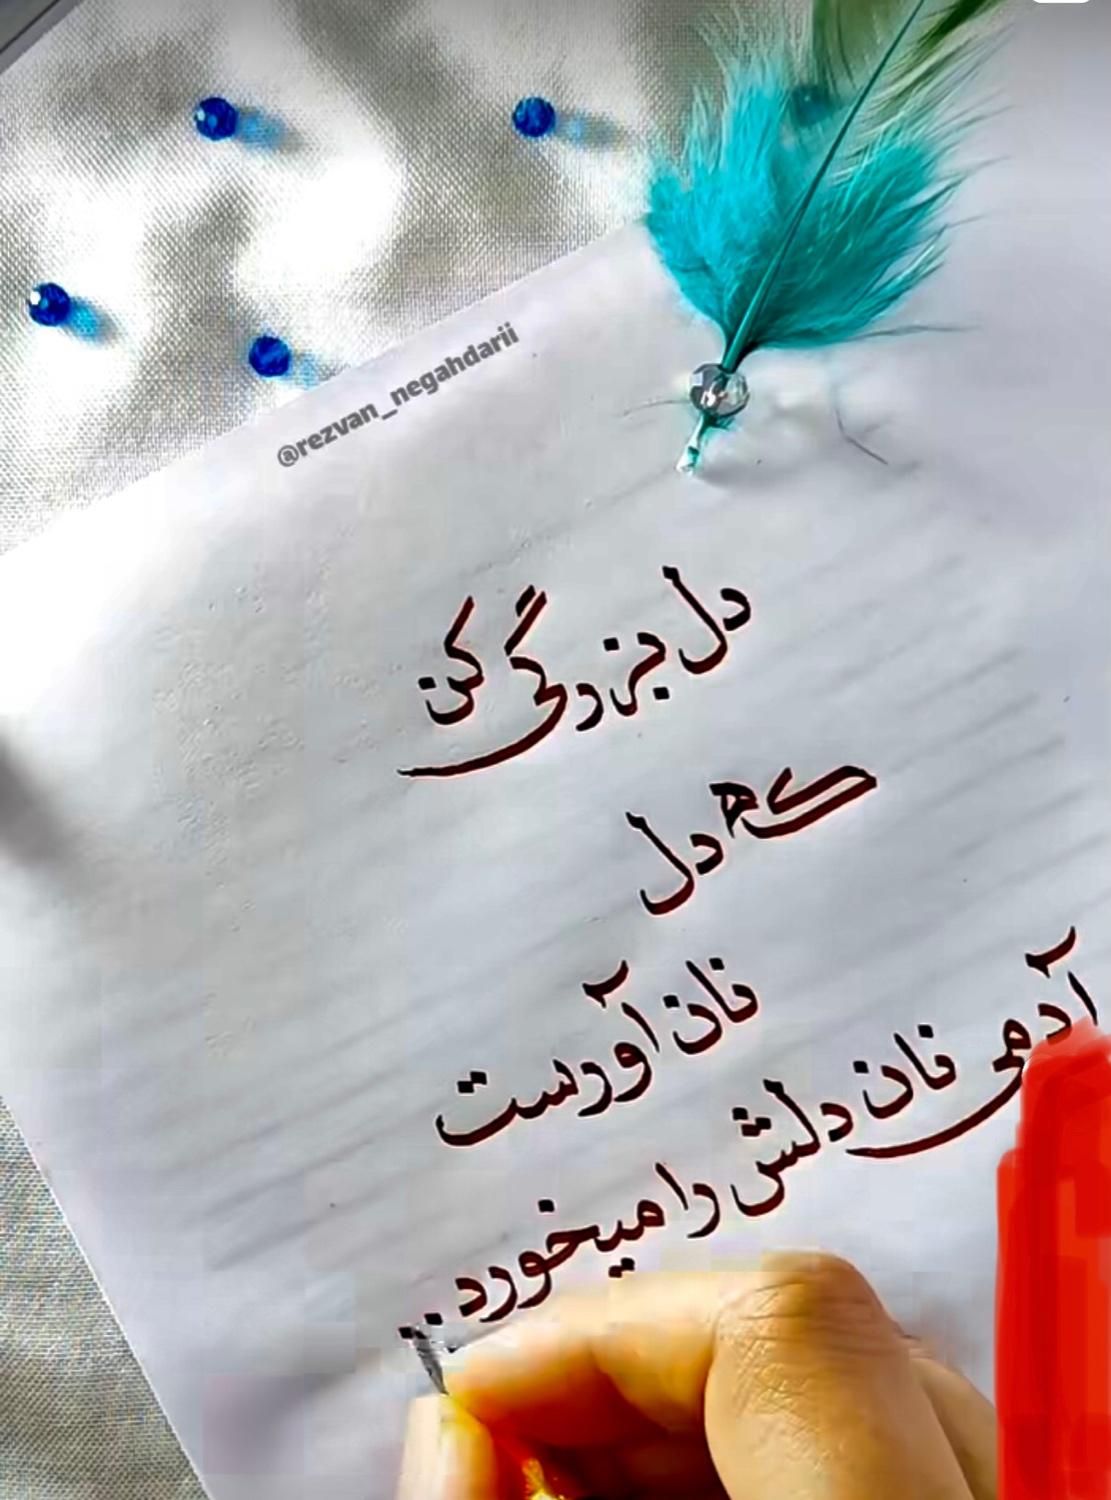 @rezvan_negahdarii
دل بزرگی کن
که دل
نان آورست
آدمی نان دلش را میخورد..